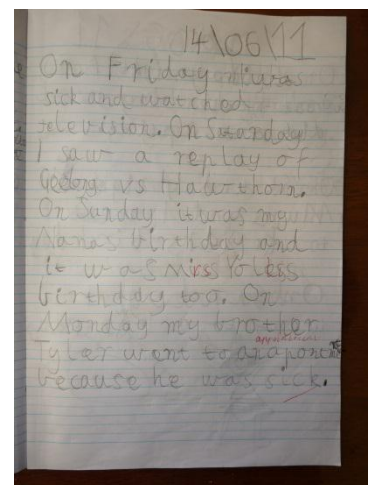 14\06\11
On Friday I was
sick and watched
television. On Saturday
I saw a replay of
Geelong vs Hawthorn.
On Sunday it was my
Nanas birthday and
it was Miss
birthday too. On
Monday my brother
appointment
Tyler went to an apontment
because he was sick.